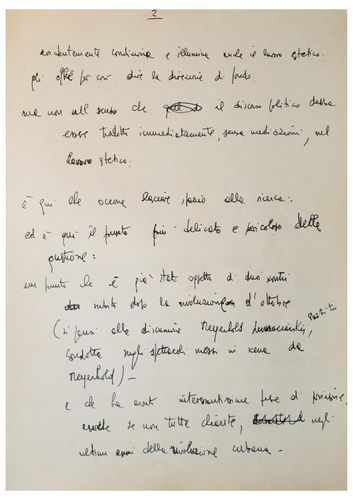 2
evidentemente condiziona e illumina anche il lavoro estetico.
gli offre per così dire la direzione di fondo.
ma non nel senso che il discorso politico debba
essere tradotto immediatamente, senza mediazioni, nel
lavoro estetico.
è qui che occorre lasciare spazio alla ricerca.
ed è qui il punto più delicato e pericoloso della
questione:
un punto che è già stato oggetto di duri scontri
subito dopo la rivoluzione d'ottobre
(si pensi alla discussione Meyerhold Lunaciarskij,
condotta sugli spettacoli messi in scena da
Meyerhold) —
e che ha avuto interessantissime prese di posizione,
anche se non tutte chiarite, negli
ultimi anni della rivoluzione cubana —